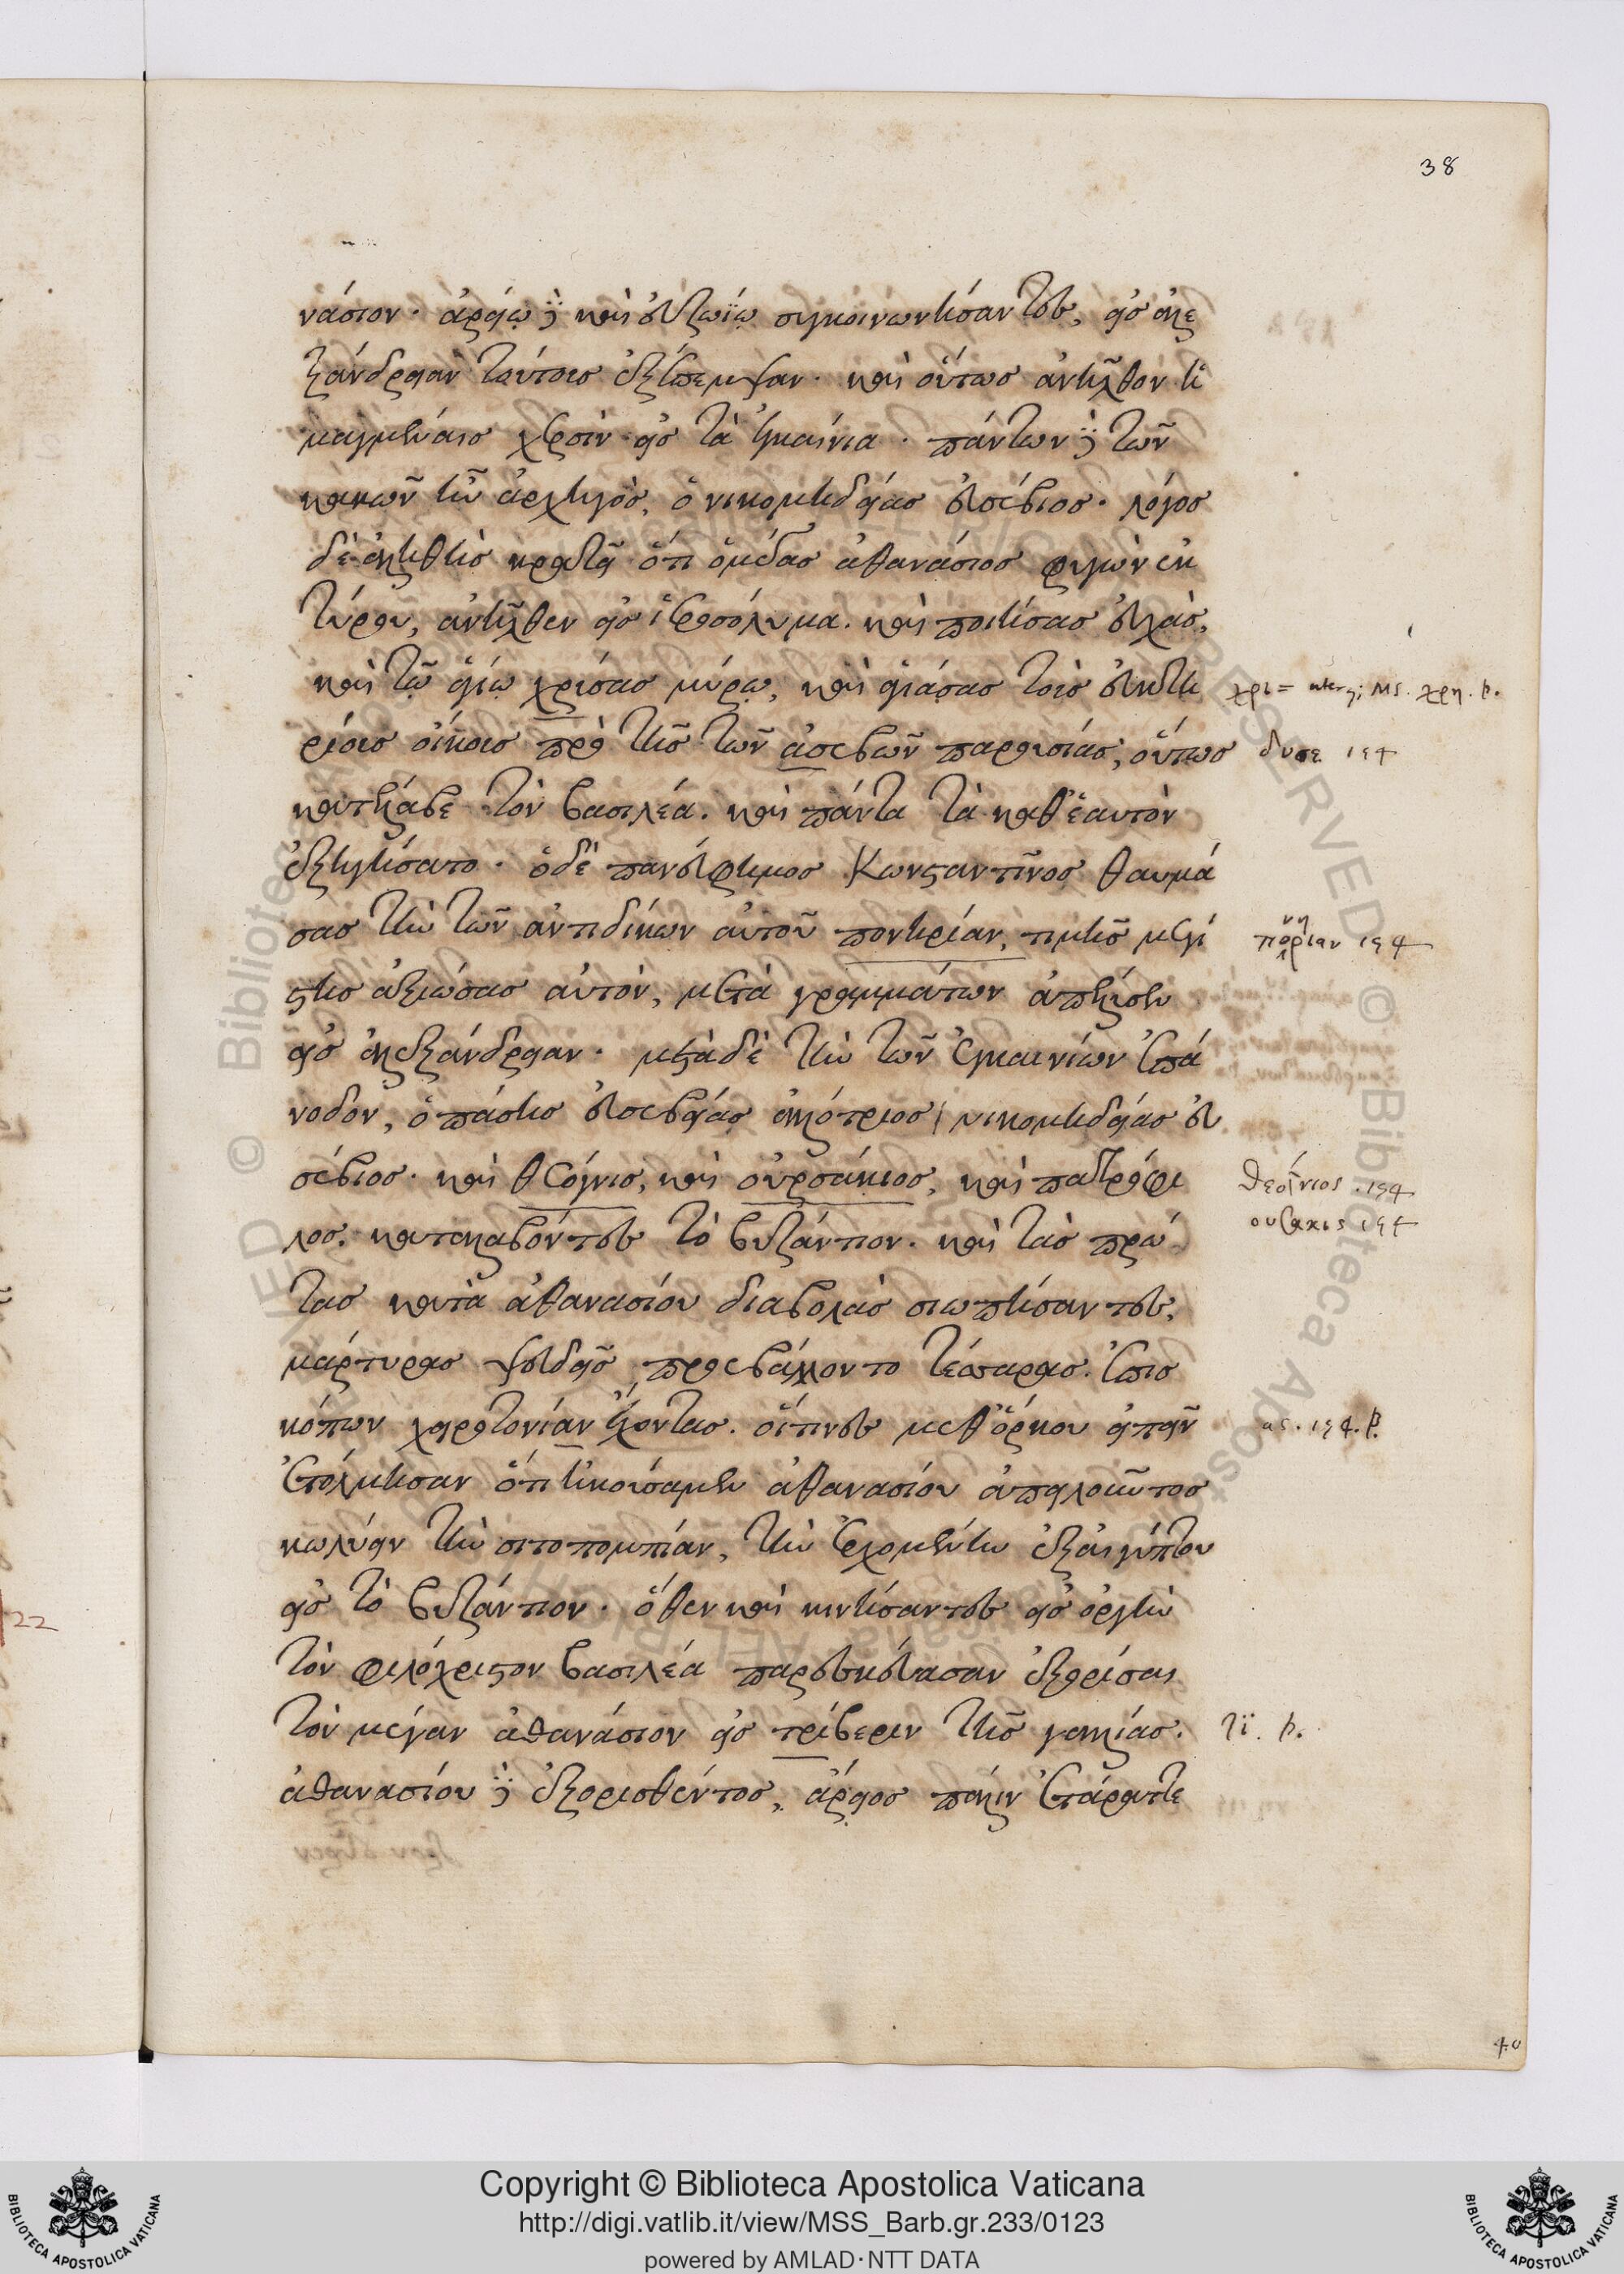 38
νάσιον· ἀρείῳ δὲ καὶ εὐζωΐῳ συγκοινωνήσαντες, εἰς ἀλε
ξάνδρειαν τούτοις ἐξέπεμψαν· καὶ οὕτως ἀνῆλθον ἡ
μαγμέναις χερσὶν εἰς τὰ ἐγκαίνια· πάντων δὲ τῶν
κακῶν ἦν ἀρχηγὸς, ὁ νικομηδείας εὐσέβιος· λόγος
δὲ ἀληθὴς κρατεῖ ὅτι ὁ μέγας ἀθανάσιος φυγὼν ἐκ
τύρου, ἀνῆλθεν εἰς ἱεροσόλυμα. καὶ ποιήσας εὐχὰς,
καὶ τῷ ἁγίῳ χρίσας μύρῳ, καὶ ἁγιάσας τοῖς εὐκτη
ρίοις οἴκοις πρὸ τῆς τῶν ἀσεβῶν παρουσίας, οὕτως
κατέλαβε τὸν βασιλέα. καὶ πάντα τὰ καθ' ἑαυτὸν
ἐξηγήσατο· ὁ δὲ πανεύφημος Κωνσταντῖνος θαυμά
σας τὴν τῶν ἀντιδίκων αὐτοῦ πονηρίαν, τιμῆς μεγί
στης ἀξιώσας αὐτὸν, μετὰ γραμμάτων ἀπέλυσεν
εἰς ἀλεξάνδρειαν· μετὰ δὲ τὴν τῶν ἐγκαινίων ἐπά
νοδον, ὁ πάσης εὐσεβείας ἀλλότριος νικομηδείας εὐ
σέβιος· καὶ θεόγνις, καὶ οὐρσάκιος, καὶ πατρόφι
λος. καταλαβόντες τὸ βυζάντιον. καὶ τὰς πρώ
τας κατὰ ἀθανασίου διαβολὰς σιωπήσαντες,
μάρτυρας ψευδεῖς προεβάλλοντο τέσσαρας. ἐπισ
κόπων χειροτονίαν ἔχοντας. οἵτινες μεθ' ὅρκου εἰπεῖν
ἐτόλμησαν ὅτι ἠκούσαμεν ἀθανασίου ἀπειλοῦντος
κωλύειν τὴν σιτοπομπίαν, τὴν ἐρχομένην ἐξ αἰγύπτου
εἰς τὸ βυζάντιον· ὅθεν καὶ κινήσαντες εἰς ὀργὴν
τὸν φιλόχριστον βασιλέα παρεσκεύασαν ἐξορίσαι
τὸν μέγαν ἀθανάσιον εἰς τρίβεριν τῆς γαλλίας.
ἀθανασίου δὲ ἐξορισθέντος, ἄρειος πάλιν ἐτάραττε
δυσε
θεόγνιος
40
22
Copyright © Biblioteca Apostolica Vaticana
http://digi.vatlib.it/view/MSS_Barb.gr.233/0123
powered by AMLAD·NTT DATA
BIBLIOTECA APOSTOLICA VATICANA
BIBLIOTECA APOSTOLICA VATICANA